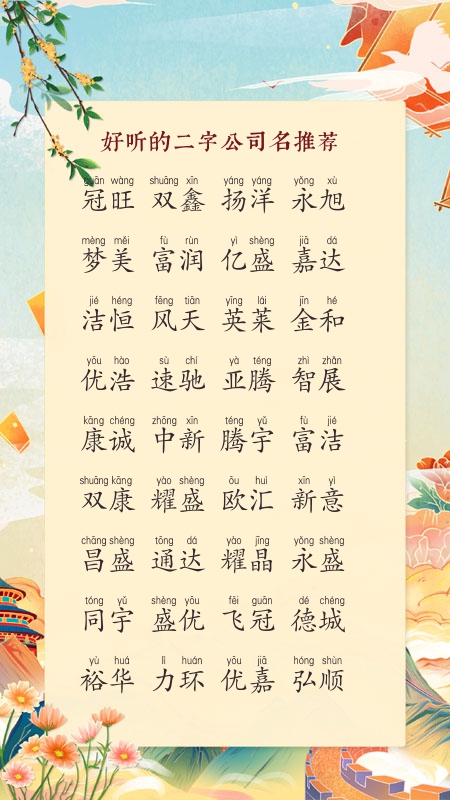 好听的二字公司名推荐
guān wàng shuāng xīn yáng yáng yǒng xù
冠旺 双鑫 扬洋 永旭
mèng měi fù rùn yì shèng jiā dá
梦美 富润 亿盛 嘉达
jié héng fēng tiān yīng lái jīn hé
洁恒 风天 英莱 金和
yōu hào sù chí yà téng zhì zhǎn
优浩 速驰 亚腾 智展
kāng chéng zhōng xīn téng yǔ fù jié
康诚 中新 腾宇 富洁
shuāng kāng yào shèng ōu huì xīn yì
双康 耀盛 欧汇 新意
chāng shèng tōng dá yào jīng yǒng shèng
昌盛 通达 耀晶 永盛
tóng yǔ shèng yōu fēi guān dé chéng
同宇 盛优 飞冠 德城
yù huá lì huán yōu jiā hóng shùn
裕华 力环 优嘉 弘顺